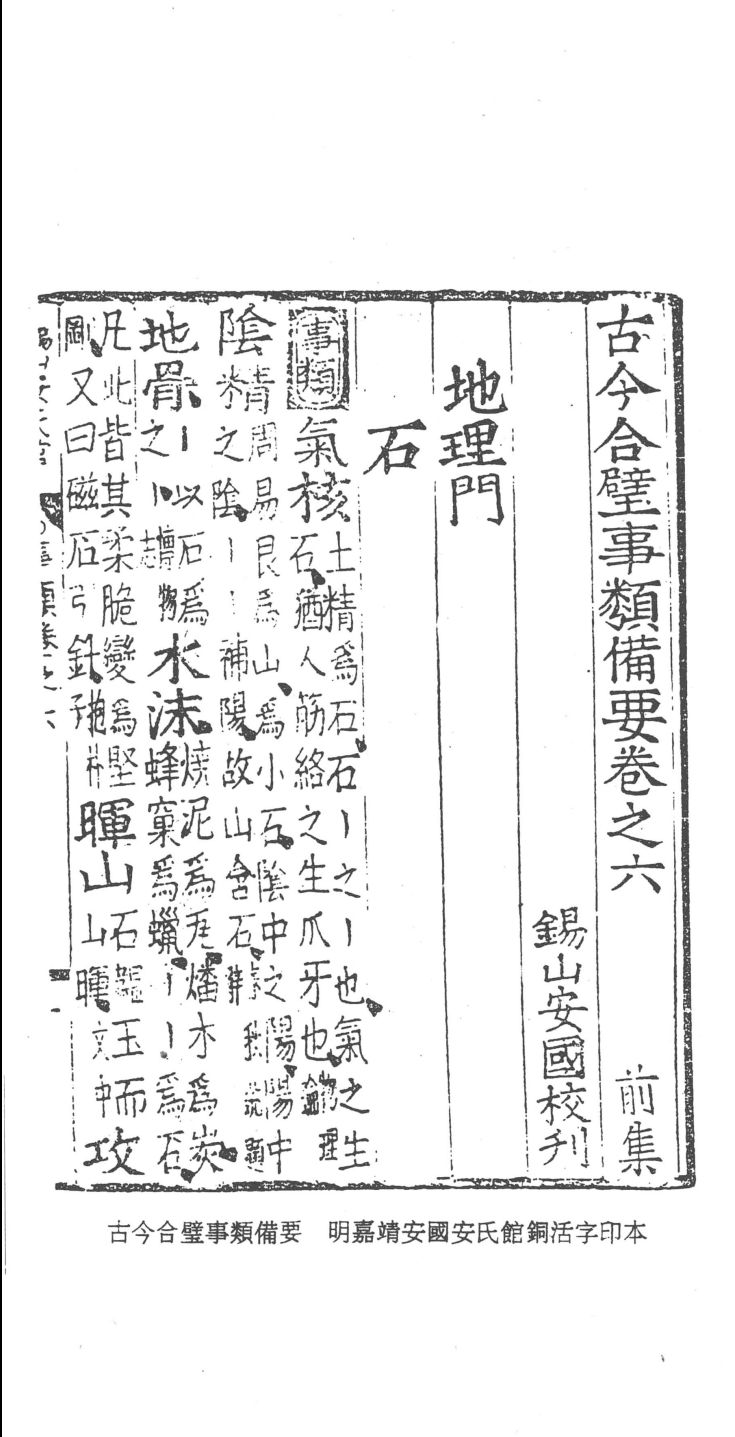 古今合璧事類備要卷之六　前集
錫山安國校刊
地理門
石
事類 氣核 土精爲石石丨之丨也氣之生石猶人筋絡之生爪牙也
陰精 周易艮爲山爲小石陰中之陽陽中之陰陰丨丨補陽故山含石
地骨 丨以石爲之丨博物志 水沫 燒泥爲瓦燔木爲炭蜂窠爲蠟丨丨爲石
凡此皆其柔脆變爲堅 暉山 石韞玉而山暉文中 攻
又曰磁石引針子抱朴
古今合璧事類備要　明嘉靖安國安氏館銅活字印本